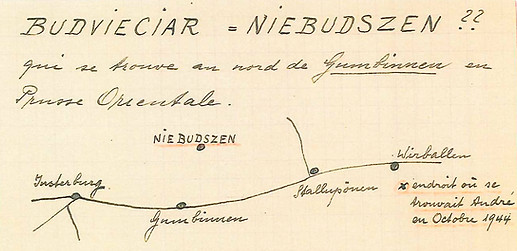 BUDVIECIAR = NIEBUDSZEN ??
qui se trouve au nord de Gumbinnen en
Prusse Orientale.
NIEBUDSZEN
Insterburg.
Gumbinnen
Stallupönen
Wirballen
x endroit où se
trouvait André
en Octobre 1944